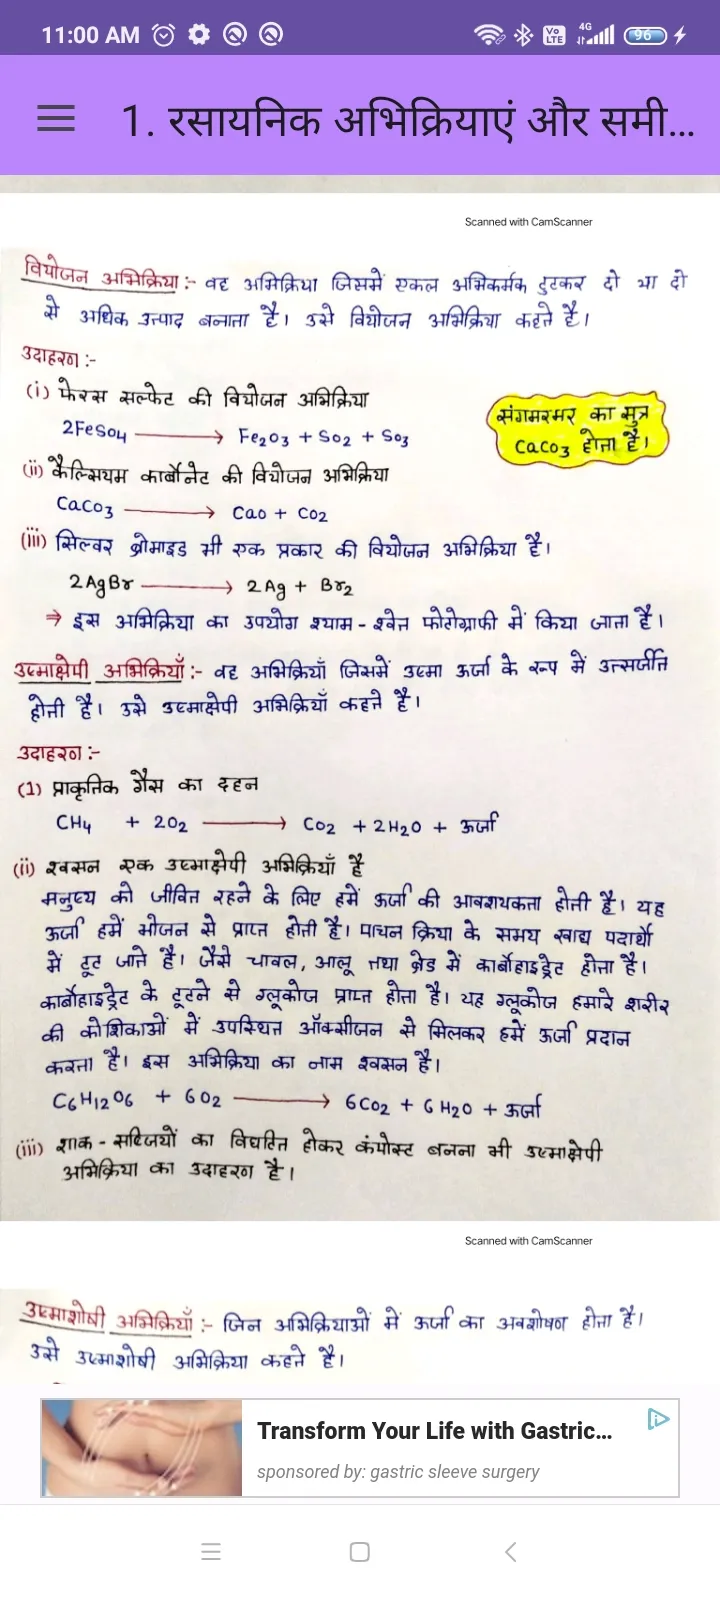 11:00 AM
Vo LTE 4G 96
1. रसायनिक अभिक्रियाएं और समी...
Scanned with CamScanner
वियोजन अभिक्रिया :- वह अभिक्रिया जिसमें एकल अभिकर्मक टुटकर दो या दो
से अधिक उत्पाद बनाता है। उसे वियोजन अभिक्रिया कहते है।
उदाहरण :-
(i) फेरस सल्फेट की वियोजन अभिक्रिया
2FeSO4 → Fe2O3 + SO2 + SO3
संगमरमर का सुत्र
CaCO3 होता है।
(ii) कैल्सियम कार्बोनेट की वियोजन अभिक्रिया
CaCO3 → CaO + CO2
(iii) सिल्वर ब्रोमाइड भी एक प्रकार की वियोजन अभिक्रिया है।
2AgBr → 2Ag + Br2
⇒ इस अभिक्रिया का उपयोग श्याम - श्वेत फोटोग्राफी में किया जाता है।
उष्माक्षेपी अभिक्रियाँ :- वह अभिक्रियाँ जिसमें उष्मा ऊर्जा के रूप में उत्सर्जीत
होती है। उसे उष्माक्षेपी अभिक्रियाँ कहते है।
उदाहरण :-
(1) प्राकृतिक गैस का दहन
CH4 + 2O2 → CO2 + 2H2O + ऊर्जा
(ii) श्वसन एक उष्माक्षेपी अभिक्रियाँ है
मनुष्य को जीवित रहने के लिए हमें ऊर्जा की आवश्यकता होती है। यह
ऊर्जा हमें भोजन से प्राप्त होती है। पाचन क्रिया के समय खाद्य पदार्थो
में टूट जाते है। जैसे चावल, आलू तथा ब्रेड में कार्बोहाइड्रेट होता है।
कार्बोहाइड्रेट के टूटने से ग्लूकोज प्राप्त होता है। यह ग्लूकोज हमारे शरीर
की कोशिकाओं में उपस्थित ऑक्सीजन से मिलकर हमें ऊर्जा प्रदान
करता है। इस अभिक्रिया का नाम श्वसन है।
C6H12O6 + 6O2 → 6CO2 + 6H2O + ऊर्जा
(iii) शाक - सब्जियों का विघटित होकर कंपोस्ट बनना भी उष्माक्षेपी
अभिक्रिया का उदाहरण है।
Scanned with CamScanner
उष्माशोषी अभिक्रियाँ :- जिन अभिक्रियाओं में ऊर्जा का अवशोषण होता है।
उसे उष्माशोषी अभिक्रिया कहते है।
Transform Your Life with Gastric...
sponsored by: gastric sleeve surgery